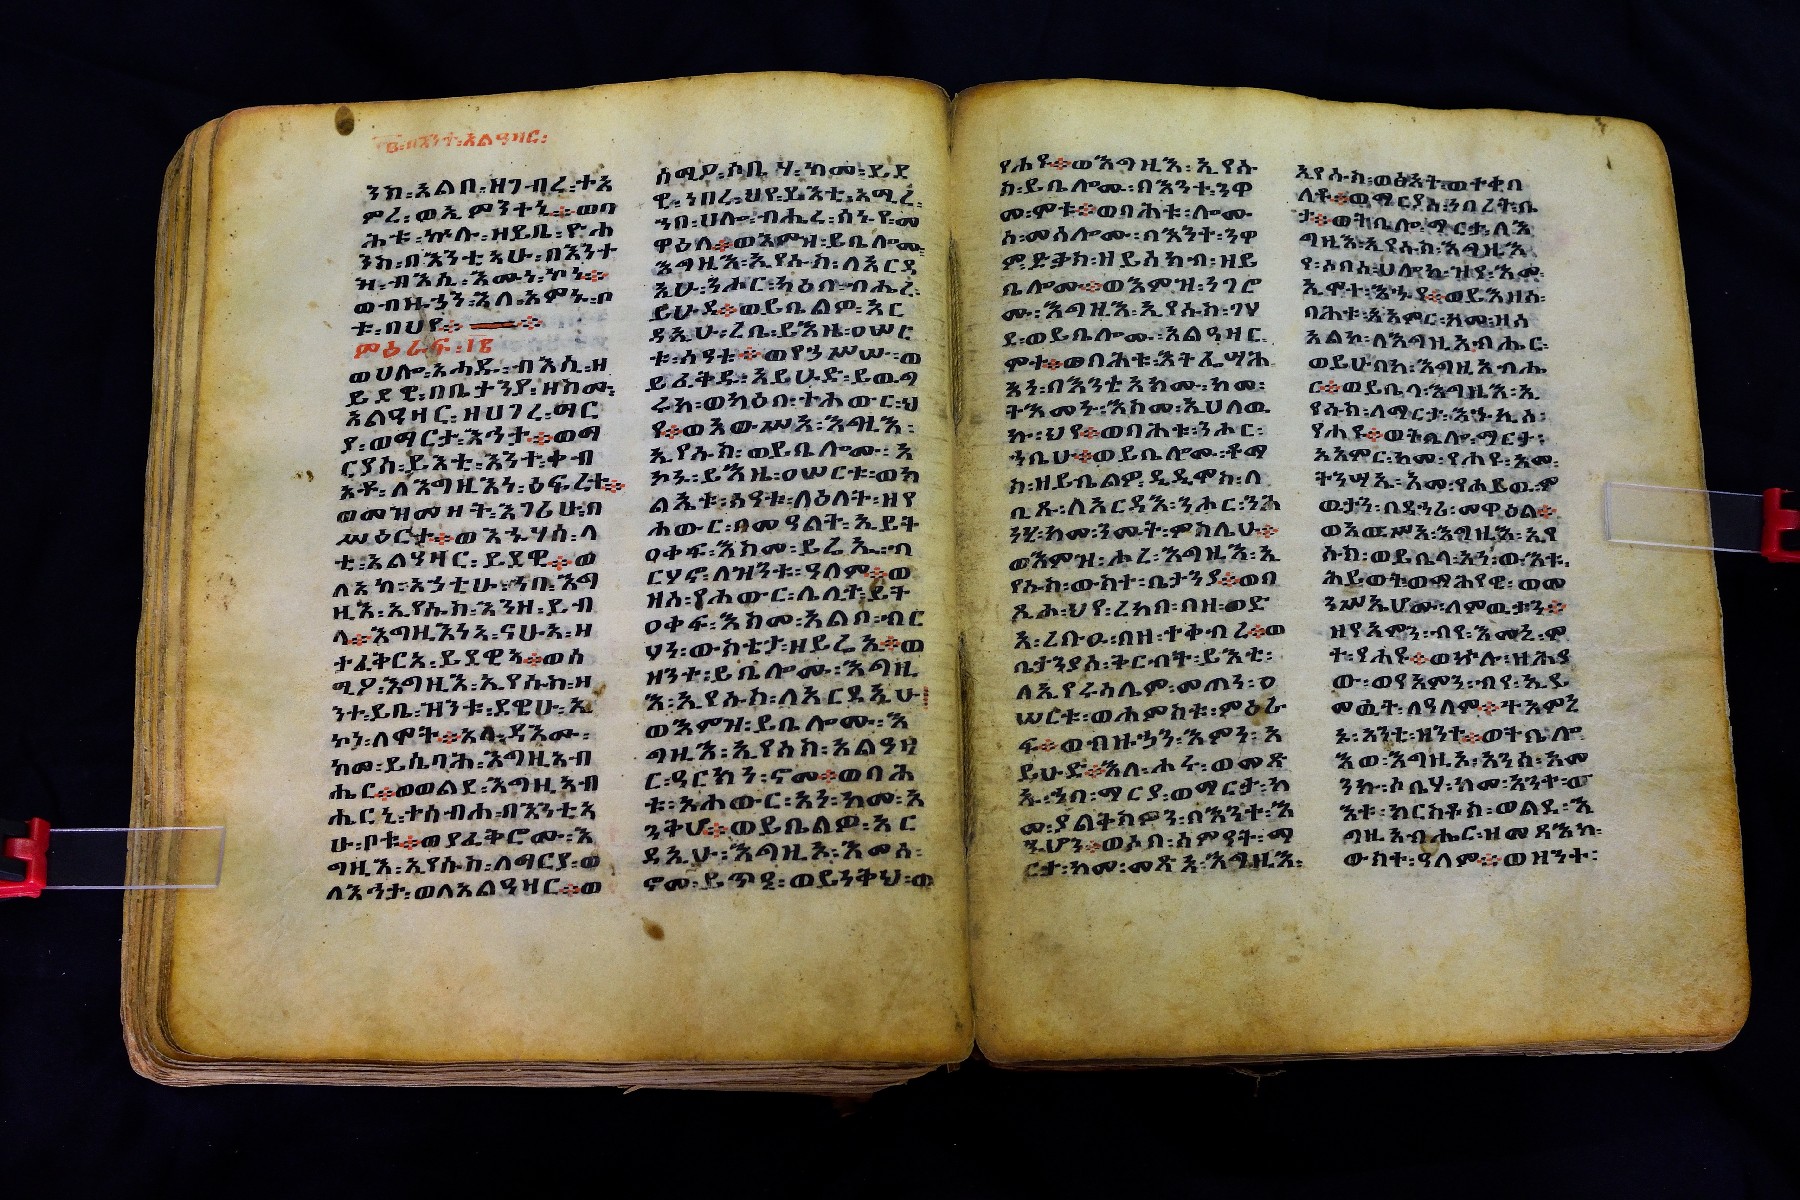 በእንተ፡አልዓዛር፡
ንከ፡አልቦ፡ዘገብረ፡ተአ
ምረ፡ወኢምንተኒ፡፡ወባ
ሕቱ፡ኵሉ፡ዘይቤ፡ዮሐ
ንስ፡በእንቲአሁ፡በእንተ
ዝ፡ብእሲ፡እሙነ፡ኮነ፡፡
ወብዙኃን፡እለ፡አምኑ፡ቦ
ቱ፡በህየ፡፡
ምዕራፍ፡፲፪
ወሀሎ፡አሐዱ፡ብእሲ፡ዘ
ይደዊ፡በቤታንያ፡ዘስሙ፡
አልዓዛር፡ዘሀገረ፡ማር
ያ፡ወማርታ፡እኅታ፡፡ወማ
ርያስ፡ይእቲ፡እንተ፡ቀብ
አቶ፡ለእግዚእነ፡ዕፍረተ፡፡
ወመዝመዘት፡እገሪሁ፡በ
ሥዕርታ፡፡ወእኁሃሰ፡ላ
ቲ፡አልዓዛር፡ይደዊ፡፡ወ
ለአካ፡አኃቲሁ፡ኀበ፡እግ
ዚእ፡ኢየሱስ፡እንዘ፡ይብ
ላ፡፡እግዚእነኣ፡ናሁኣ፡ዘ
ታፈቅርኣ፡ይደዊኣ፡፡ወሰ
ሚዖ፡እግዚእ፡ኢየሱስ፡ዘ
ንተ፡ይቤ፡ዝንቱ፡ደዌሁ፡ኢ
ኮነ፡ለሞት፡፡አላ፡ዳእሙ፡
ከመ፡ይሴባሕ፡እግዚአብ
ሔር፡፡ወወልደ፡እግዚአብ
ሔርኒ፡ተሰብሐ፡በእንቲአ
ሁ፡ቦቱ፡፡ወያፈቅሮሙ፡እ
ግዚእ፡ኢየሱስ፡ለማርያ፡ወ
ለእኅታ፡ወለአልዓዛር፡፡ወ
ሰሚዖ፡ሶቤሃ፡ከመ፡ይደ
ዊ፡ነበረ፡ህየ፡ይእቲ፡አሚረ፡
ኀበ፡ሀሎ፡ብሔረ፡ሰኑየ፡መ
ዋዕለ፡፡ወእምዝ፡ይቤሎሙ፡
እግዚእ፡ኢየሱስ፡ለአርዳ
ኢሁ፡ንሖር፡ካዕበ፡ብሔረ፡
ይሁዳ፡፡ወይቤልዎ፡አር
ዳኢሁ፡ረቢ፡ይእዜ፡ዐሠር
ቱ፡ሰዓቱ፡፡ወየኃሥሡ፡ወ
ይፈቅዱ፡አይሁድ፡ይዉግ
ሩከ፡ወካዕበ፡ተሐውር፡ህ
የ፡፡ወአውሥአ፡እግዚእ፡
ኢየሱስ፡ወይቤሎሙ፡አ
ኮኑ፡ይእዜ፡ዐሠርቱ፡ወክ
ልኤቱ፡ሰዓቱ፡ለዕለት፡ዘየ
ሐውር፡በመዓልት፡ኢይት
ዐቀፍ፡እስመ፡ይሬኢ፡ብ
ርሃኖ፡ለዝንቱ፡ዓለም፡፡ወ
ዘሰ፡የሐውር፡ሌሊት፡ይት
ዐቀፍ፡እስመ፡አልቦ፡ብር
ሃን፡ውስቴታ፡ዘይሬኢ፡፡ወ
ዘንተ፡ይቤሎሙ፡እግዚ
እ፡ኢየሱስ፡ለአርዳኢሁ፡
ወእምዝ፡ይቤሎሙ፡እ
ግዚእ፡ኢየሱስ፡አልዓዛ
ር፡ዓርክነ፡ኖመ፡፡ወባሕ
ቱ፡አሐውር፡አነ፡ከመ፡አ
ንቅሆ፡፡ወይቤልዎ፡አር
ዳኢሁ፡እግዚእ፡እመሰ፡
ኖመ፡ይጥዒ፡ወይነቅህ፡፡ወ
የሐዩ፡፡ወእግዚእ፡ኢየሱ
ስ፡ይቤሎሙ፡በእንተ፡ንዋ
መ፡ሞቱ፡፡ወባሕቱ፡ሎሙ
ሰ፡መሰሎሙ፡በእንተ፡ንዋ
ም፡ድቃስ፡ዘይሰክብ፡ዘይ
ቤሎሙ፡፡ወእምዝ፡ነገሮ
ሙ፡እግዚእ፡ኢየሱስ፡ገሃ
ደ፡ወይቤሎሙ፡አልዓዛር፡
ሞተ፡፡ወባሕቱ፡እትፌሣሕ
አነ፡በእንቲአክሙ፡ከመ፡
ትእመኑ፡እስመ፡ኢሀለዉ
ኩ፡ህየ፡፡ወባሕቱ፡ንሖር፡
ኀቤሁ፡፡ወይቤሎሙ፡ቶማ
ስ፡ዘይቤልዎ፡ዲዲሞስ፡ለ
ቢጹ፡ለአርዳእ፡ንሖር፡ንሕ
ነሂ፡ከመ፡ንሙት፡ምስሌሁ፡፡
ወእምዝ፡ሖረ፡እግዚእ፡ኢ
የሱስ፡ውስተ፡ቤታንያ፡፡ወበ
ጺሖ፡ህየ፡ረከቦ፡በዘ፡ወድ
አ፡ረቡዑ፡በዘ፡ተቀብረ፡፡ወ
ቤታንያሰ፡ቅርብት፡ይእቲ፡
ለኢየሩሳሌም፡መጠነ፡ዐ
ሠርቱ፡ወሐምስቱ፡ምዕራ
ፍ፡፡ወብዙኃን፡እምነ፡አ
ይሁድ፡፡እለ፡ሖሩ፡ወመጽ
ኡ፡ኀበ፡ማርያ፡ወማርታ፡ከ
መ፡ያልትክዎን፡በእንተ፡እ
ኁሆን፡፡ወሶበ፡ሰምዓት፡ማ
ርታ፡ከመ፡መጽአ፡እግዚእ፡
ኢየሱስ፡ወፅአት፡ወተቀበ
ለቶ፡፡ወማርያሰ፡ነበረት፡ቤ
ታ፡፡ወትቤሎ፡ማርታ፡ለእ
ግዚእ፡ኢየሱስ፡እግዚእ
የ፡ሶበሰ፡ሀሎከ፡ዝየ፡እመ፡
ኢሞተ፡እኁየ፡፡ወይእዜሰ፡
ባሕቱ፡አአምር፡ከመ፡ዘሰ
አልኮ፡ለእግዚአብሔር፡
ወይሁበከ፡እግዚአብሔ
ር፡፡ወይቤላ፡እግዚእ፡ኢ
የሱስ፡ለማርታ፡እኁኪሰ፡
የሐዩ፡፡ወትቤሎ፡ማርታ፡
አአምር፡ከመ፡የሐዩ፡አመ፡
ትንሣኤ፡አመ፡የሐይዉ፡ም
ውታን፡በደኃሪ፡መዋዕል፡፡
ወአውሥአ፡እግዚእ፡ኢየ
ሱስ፡ወይቤላ፡አነ፡ውእቱ፡
ሕይወት፡ወማሕየዊ፡ወመ
ንሥኢሆሙ፡ለምዉታን፡፡
ዘየአምን፡ብየ፡እመኒ፡ሞ
ተ፡የሐዩ፡፡ወኵሉ፡ዘሕያ
ው፡ወየአምን፡ብየ፡ኢይ
መዉት፡ለዓለም፡፡ተአምኒ
ኑ፡አንቲ፡ዘንተ፡፡ወትቤሎ
እወ፡እግዚእ፡አንሰ፡አመ
ንኩ፡ሶቤሃ፡ከመ፡አንተ፡ው
እቱ፡ክርስቶስ፡ወልደ፡እ
ግዚአብሔር፡ዘመጻእከ፡
ውስተ፡ዓለም፡፡ወዘንተ፡